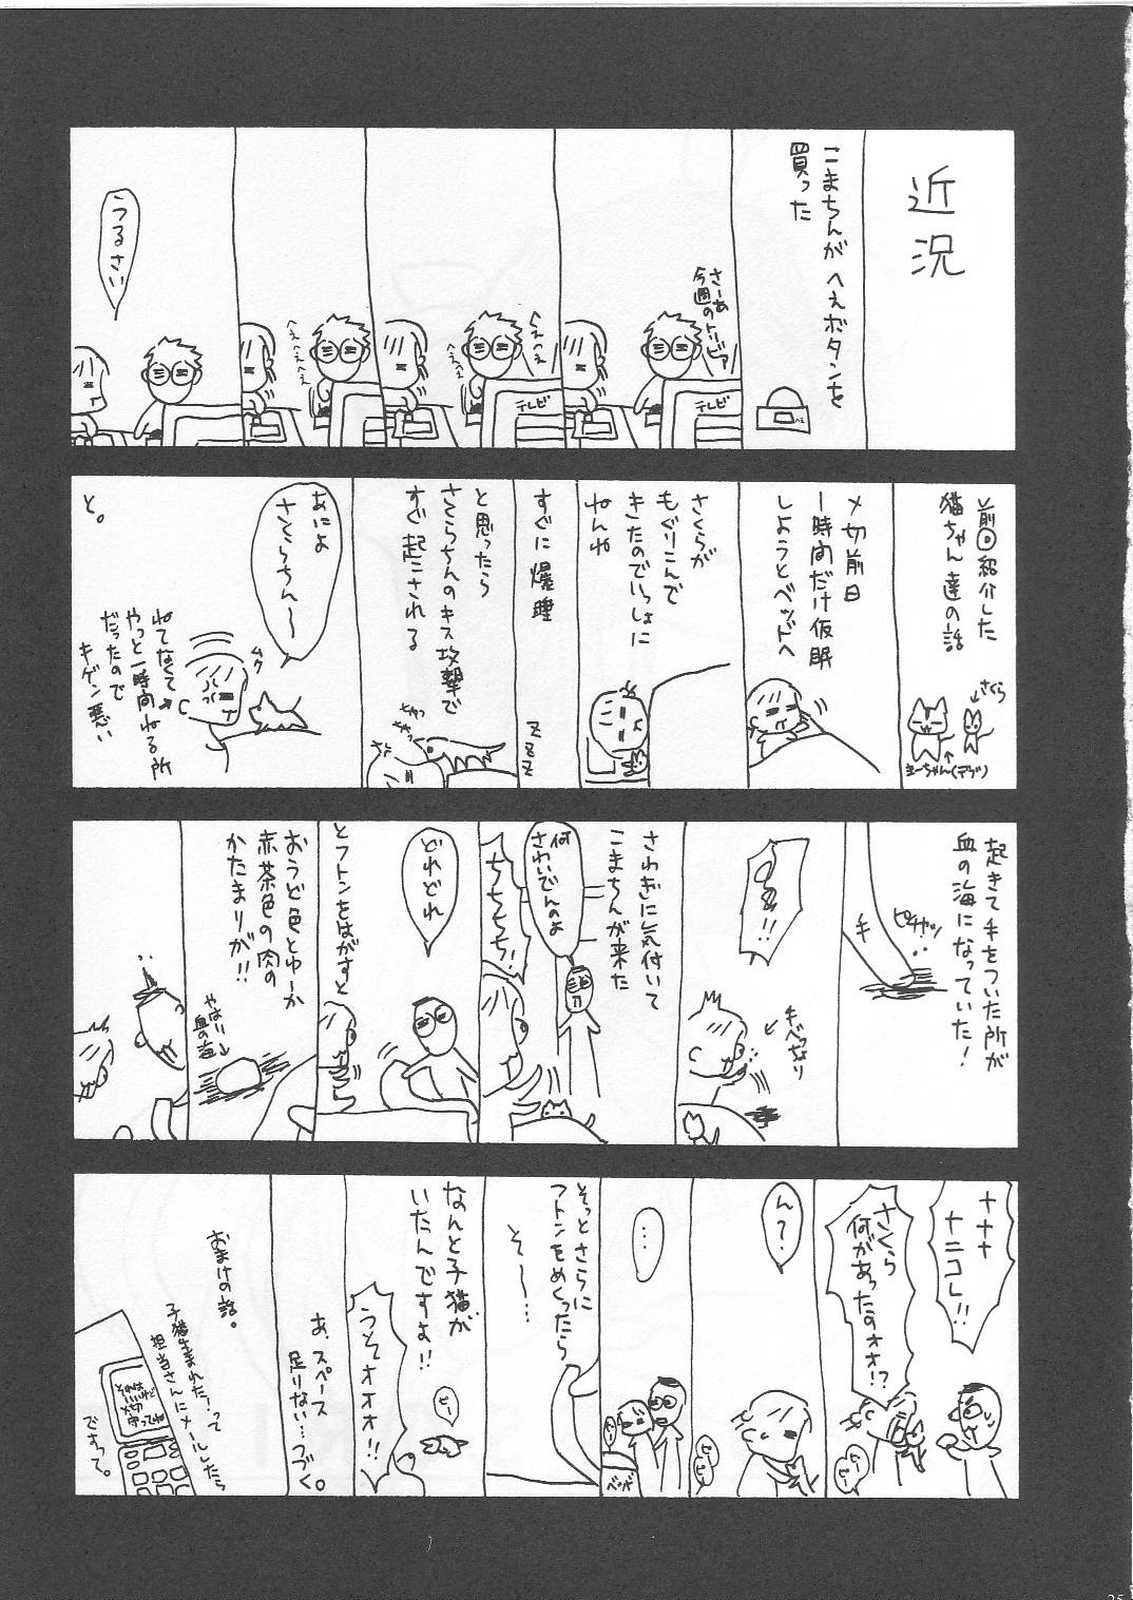 近況
こまちんがへぇボタンを
買った
さーあ
今週のトリビア
テレビ
へぇへぇ
へぇへぇ
テレビ
へぇへぇへぇへぇ
うるさい
前回紹介した
猫ちゃん達の話
さくら
まーちゃん(デブ)
〆切前日
一時間だけ仮眠
しようとベッドへ
さくらが
もぐりこんで
きたのでいっしょに
ねんね
すぐに爆睡
ZZZ
と思ったら
さくらちんのキス攻撃で
すぐ起こされる
ちゅっ
ちゅっ
あによ
さくらちん〜
ムク
ねてなくて
やっと一時間ねる所
だったので
キゲン悪い
と。
起きて手をついた所が
血の海になっていた!
ピチャッ
手
!!
さわぎに気付いて
こまちんが来た
何
さわいでんのよ
ちちちち!
どれどれ
とフトンをはがすと
おうど色とゆーか
赤茶色の肉の
かたまりが!!
やはり
血の海
ナナナ
ナニコレ!!
さくら
何があったのオオ!?
ピーピー
ん?
ピーピー
…
ピーピー
ベッド
そっとさらに
フトンをめくったら
そ〜…
なんと子猫が
いたんですよ!!
ピー
うそオオオ!!
あ、スペース
足りない…つづく。
おまけの話。
子猫生まれた!って
担当さんにメールしたら
ですって。
25